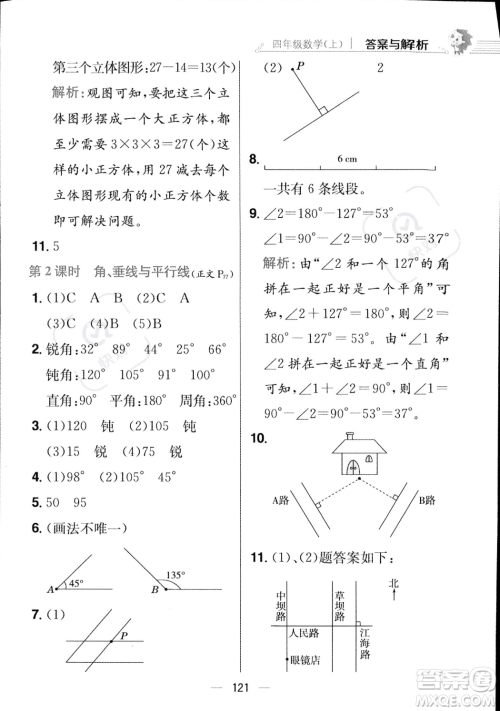 四年级数学(上) 答案与解析
第三个立体图形:27-14=13(个)
解析:观图可知,要把三个立
体图形摆成一个大正方体,都
至少需要3×3×3=27(个)这
样的小正方体,用27减去每个
立体图形现有的小正方体个数
即可解决问题。
11.5
第2课时 角、垂线与平行线(正文P77)
1.(1)AC (2)BA
(3)C (4)B (5)A
2.锐角:32° 89° 18°
钝角:120° 113° 100°
直角:90° 平角:180° 周角:360°
3.(1)120 钝 (2)60 锐
(3)115 钝 (4)25 锐
4.(1)98° (2)40°
5.50 95
6.(画法不唯一)
A 45° B 135°
7.(1)
P
(2) P 2
8.
6 cm
一共有6条线段。
9.∠2=180°-127°=53°
∠2=180°-127°=53°
∠1=90°-∠2=90°-53°=37°
解析:由“∠2和127°的角
拼在一起正好是一个平角”可
知,∠2+127°=180°,则∠2=
180°-127°=53°;由“∠1和∠2
拼在一起正好是一个直角”可
知,∠1+∠2=90°,则∠1=
90°-∠2=90°-53°=37°。
10.
A路 B路
11.(1)、(2)题答案如下:
中坝路 草坝路 北
人民路 江海路
眼镜店
121